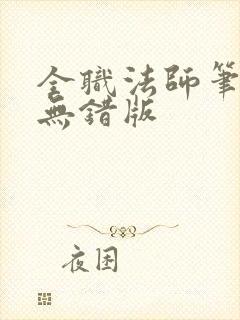 全職法師筆
無錯版
夜困